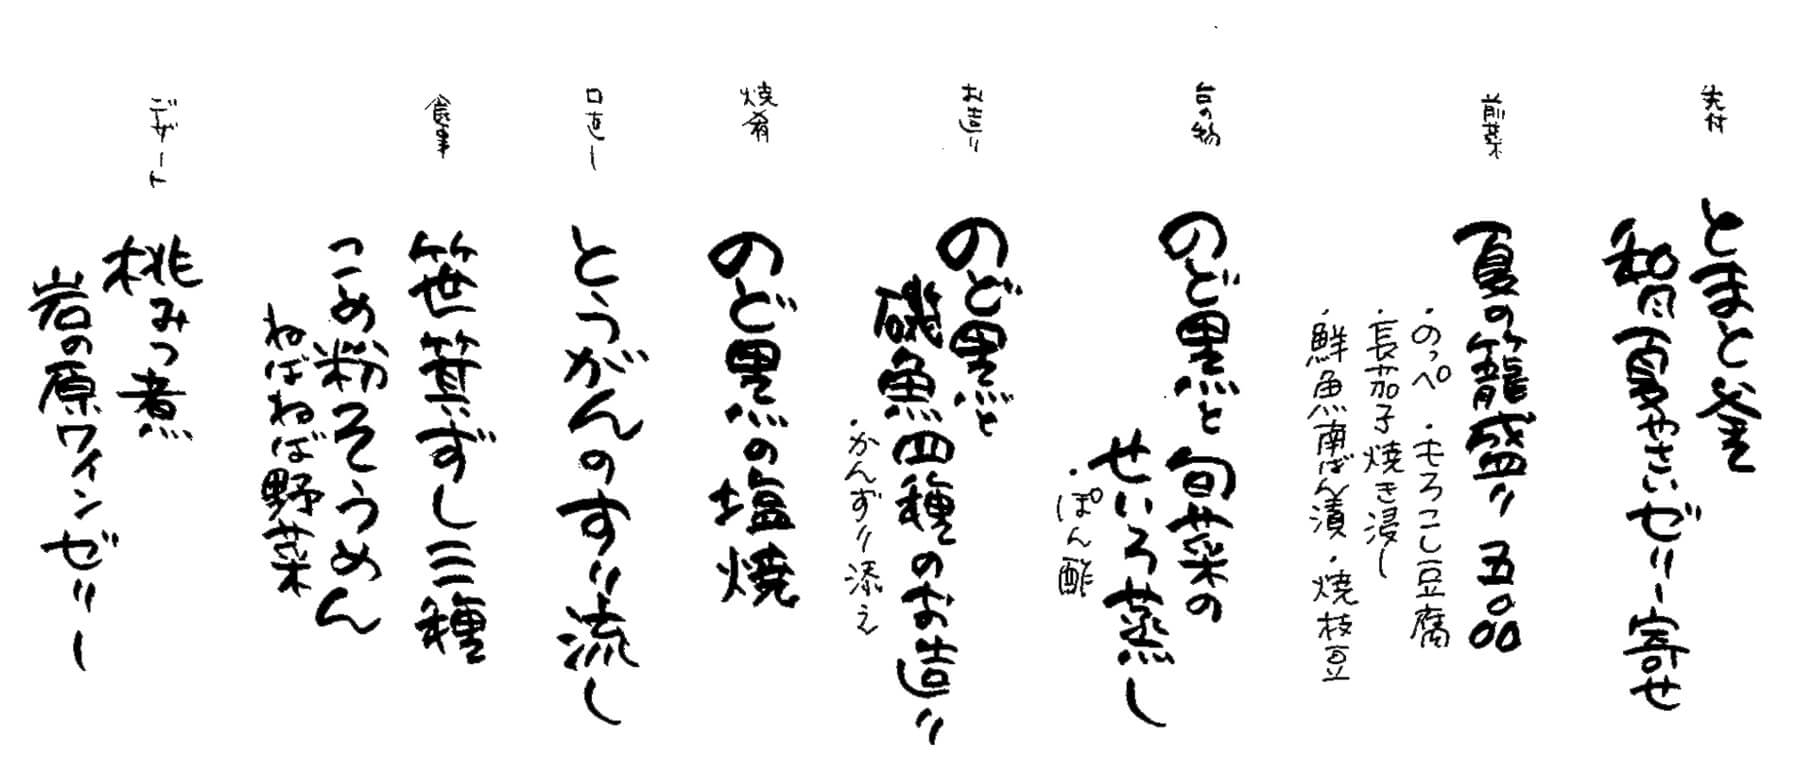 先付
とまと釜
和風夏やさいゼリー寄せ
前菜
夏の籠盛り 五品
・のっぺ ・もろこし豆腐
・長茄子焼き浸し
・鮮魚南ばん漬 ・焼枝豆
台の物
のど黒と旬菜の
せいろ蒸し
・ぽん酢
お造り
のど黒と
磯魚四種のお造り
・かんずり添え
焼肴
のど黒の塩焼
口直し
とうがんのすり流し
食事
笹箕ずし三種
こめ粉そうめん
ねばねば野菜
デザート
桃みつ煮
岩の原ワインゼリー